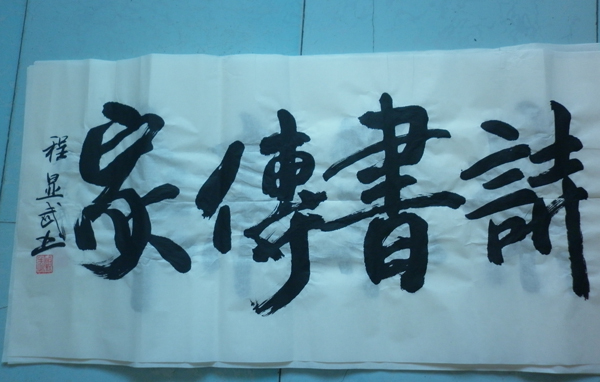 詩書傳家
程显武书